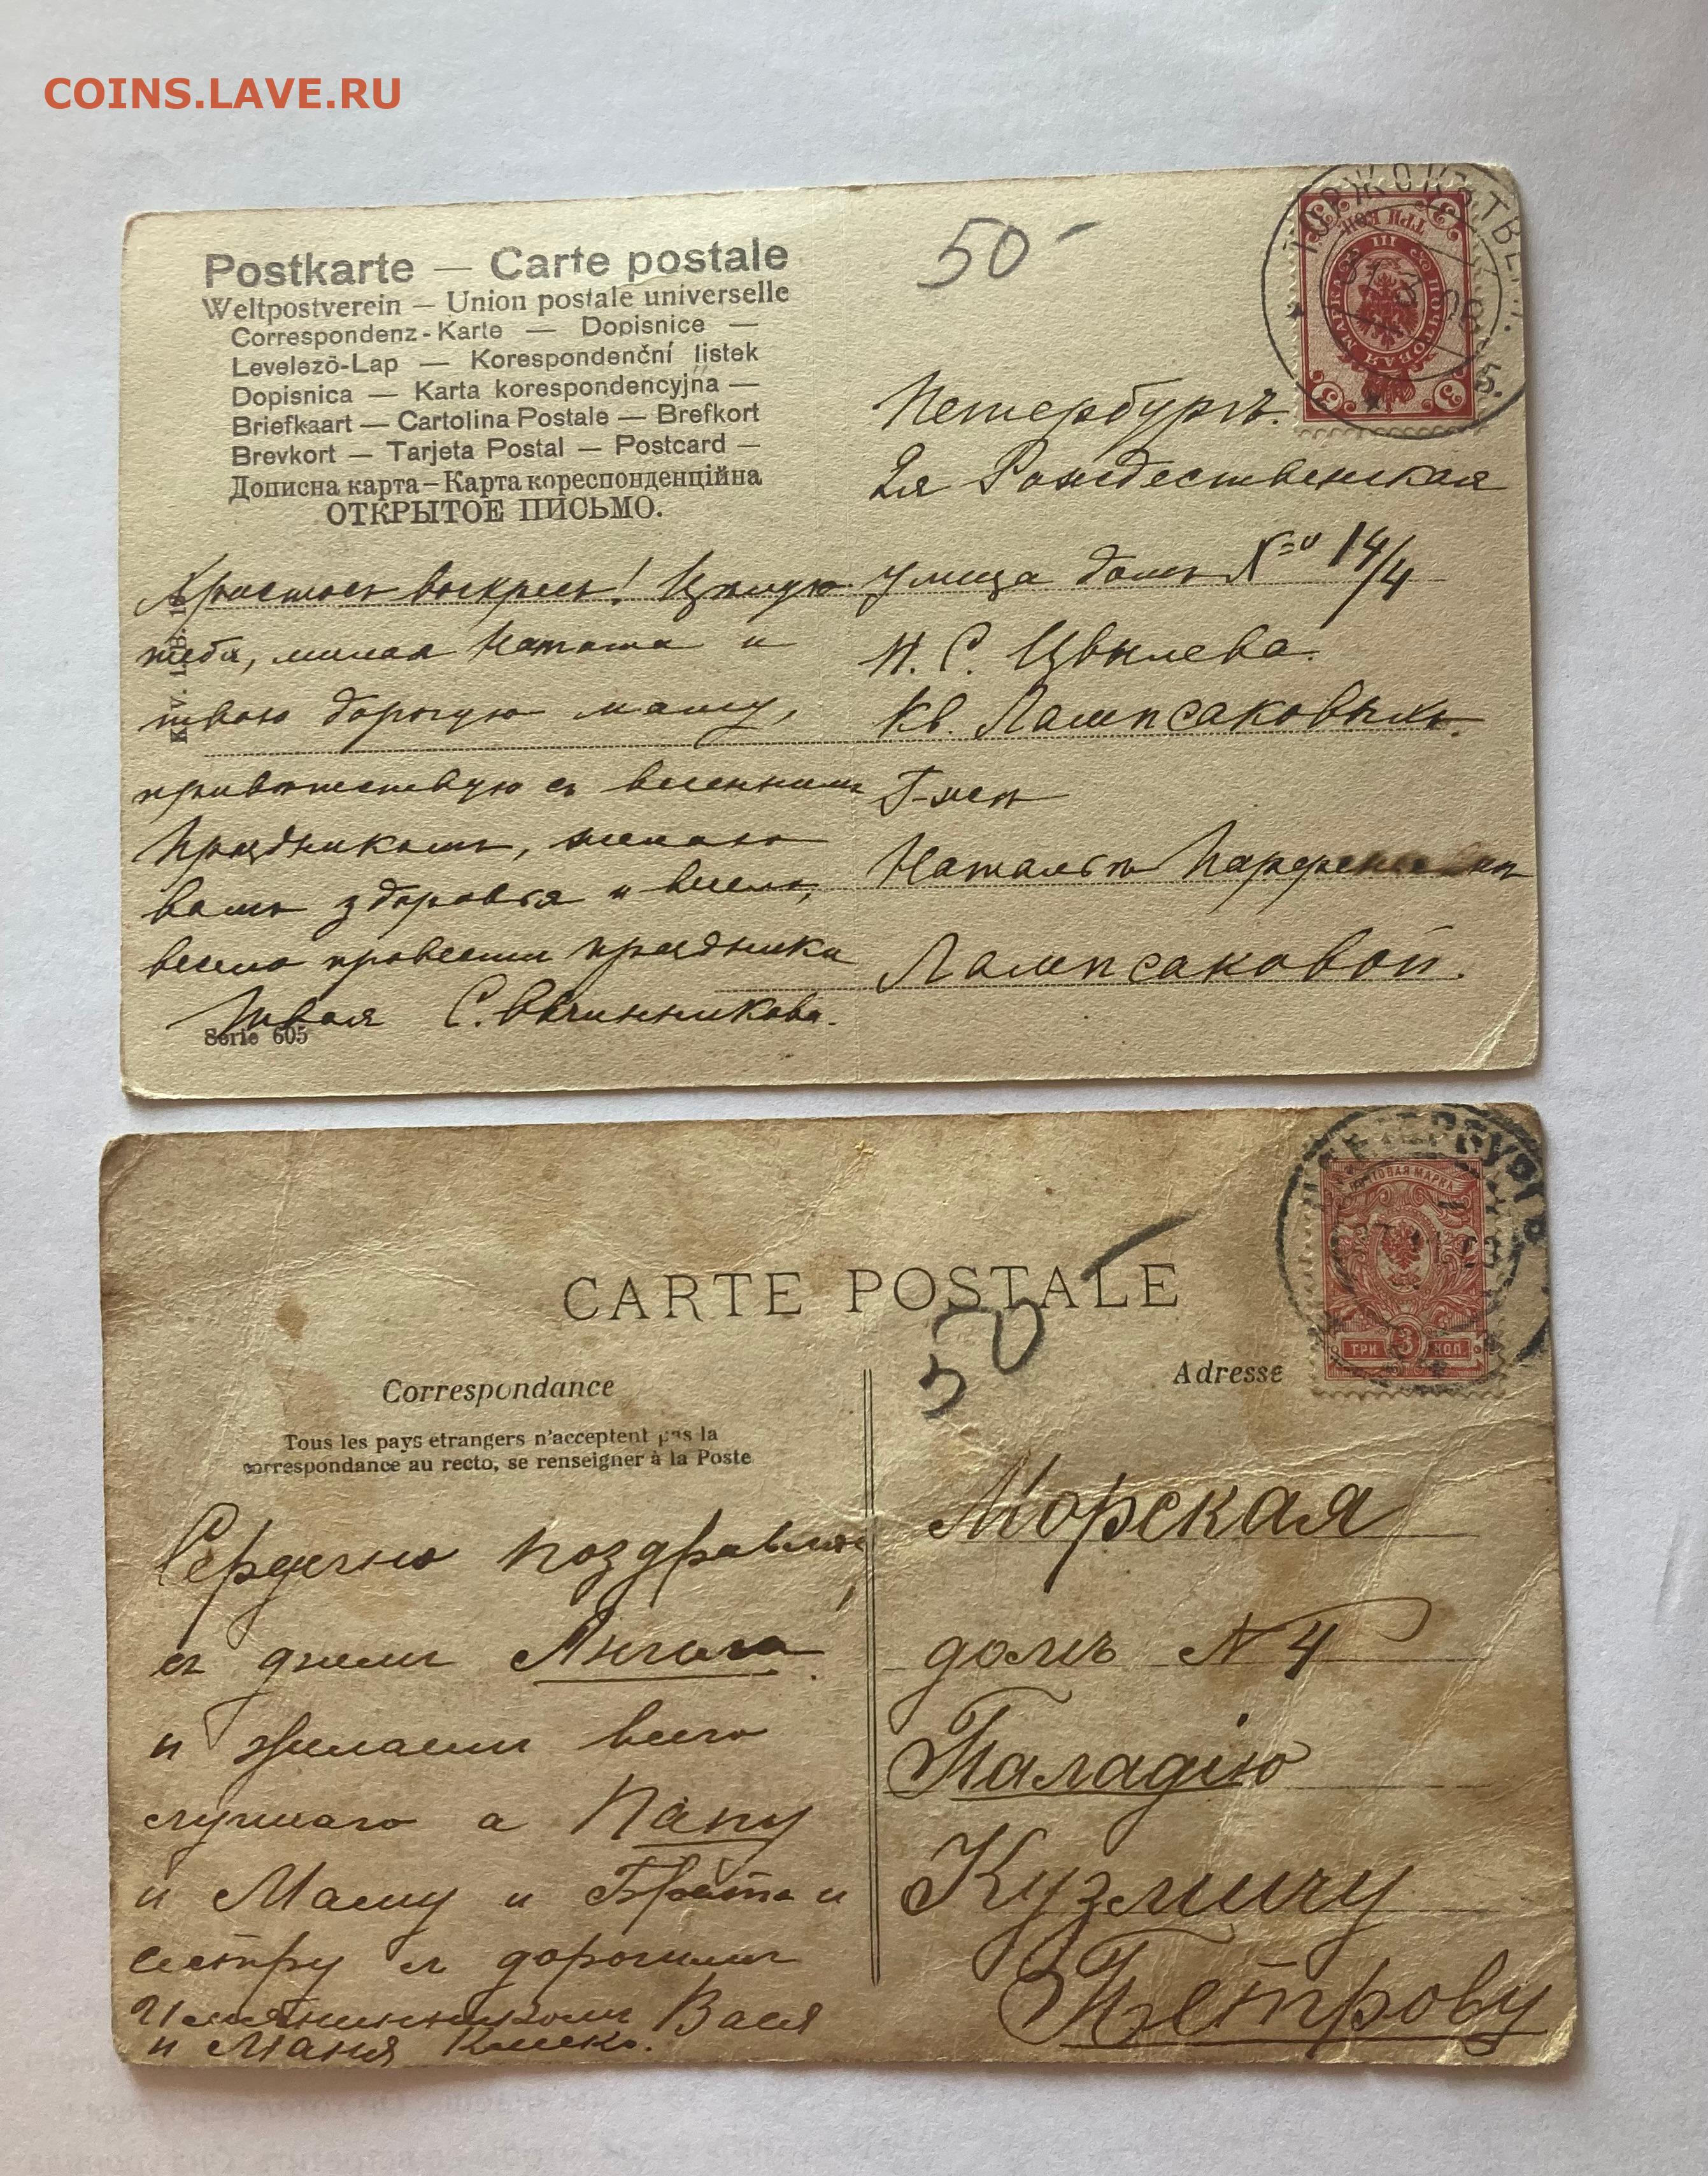 COINS.LAVE.RU
Postkarte — Carte postale
Weltpostverein — Union postale universelle
Correspondenz-Karte — Dopisnice —
Levelezö-Lap — Korespondenční listek
Dopisnica — Karta korespondencyjna —
Briefkaart — Cartolina Postale — Brefkort
Brevkort — Tarjeta Postal — Postcard —
Дописна карта — Карта кореспонденційна
ОТКРЫТОЕ ПИСЬМО.
Христосъ воскресъ! Цѣлую
тебя, милая Наташа и
твою дорогую маму,
привѣтствую съ весеннимъ
праздникомъ, желаю
вамъ здоровья и весело,
весело провести праздники
Твоя С. Овчинникова.
Serie 605
50-
ТРИ КОП
III
ПОЧТОВАЯ МАРКА
3 3 3 3
Петербургъ.
2я Рождественская
улица домъ № 14/4
Н. С. Цвылева
кв. Лампсаковыхъ.
Г-жѣ
Натальѣ
Лампсаковой.
CARTE POSTALE
50
Correspondance
Adresse
Tous les pays etrangers n'acceptent pas la
correspondance au recto, se renseigner à la Poste
Сердечно поздравляю
съ днемъ Ангела
и желаемъ всего
лучшаго а Папу
и Маму и Брата и
сестру съ дорогимъ
Имянинникомъ Вася
и Маня
ПЕТЕРБУРГЪ
ПОЧТОВАЯ МАРКА
ТРИ 3 КОП
Морская
домъ № 4
Паладію
Кузмичу
Петрову